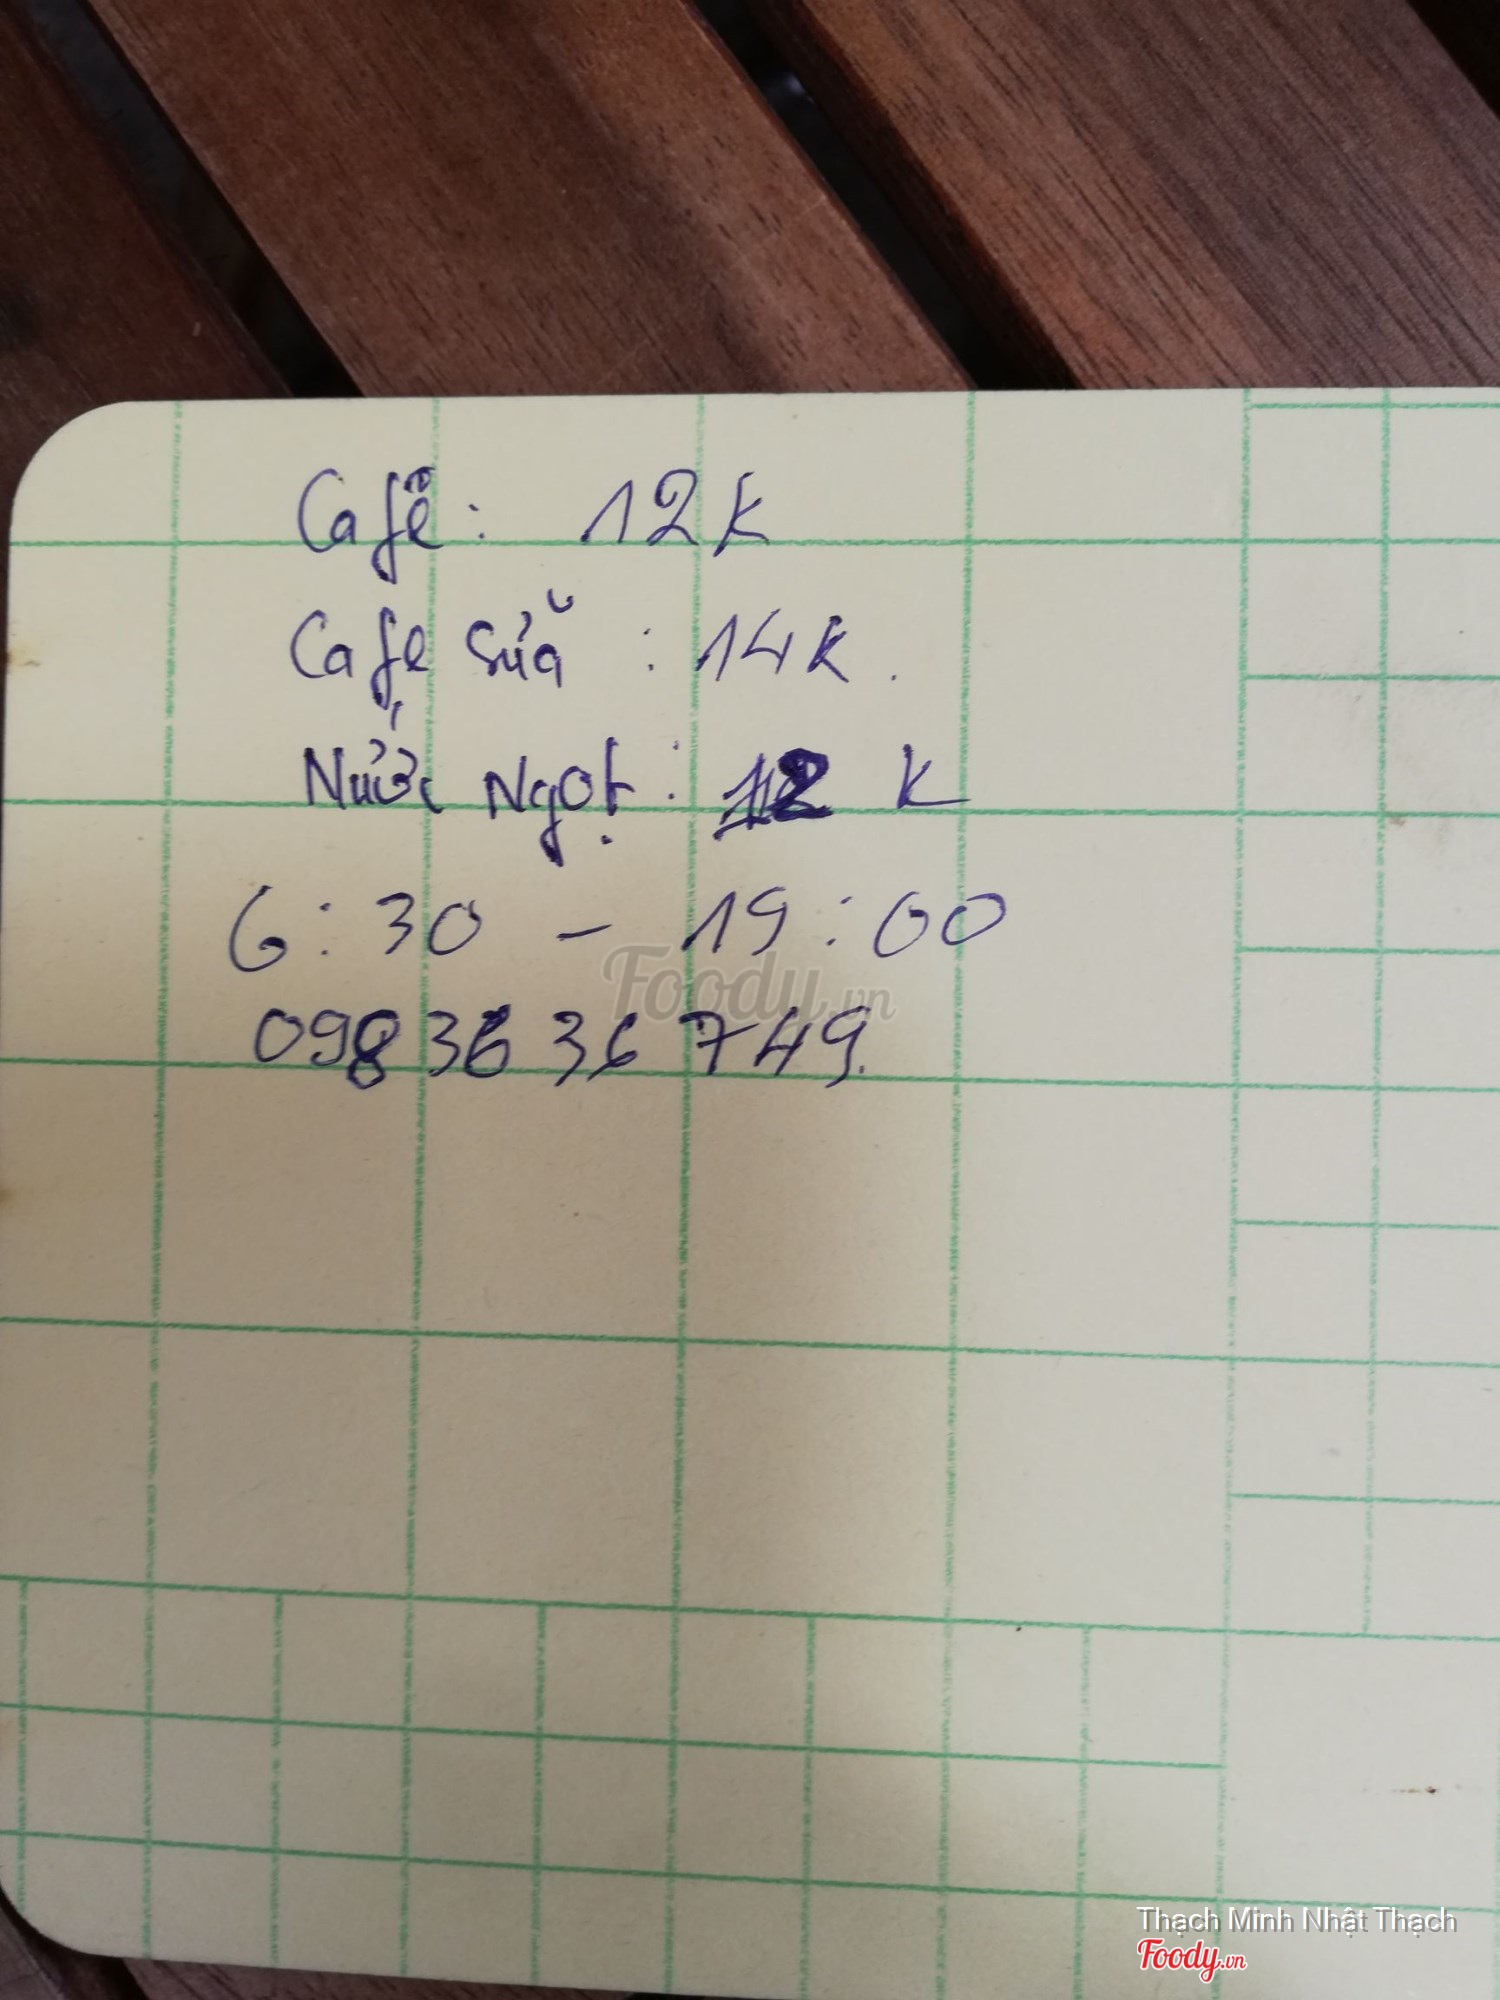 Café: 12k
Cafe sữa : 14k.
Nước Ngọt: 12 k
6:30 - 19:00
0983636749.
Foody.vn
Thạch Minh Nhật Thạch
Foody.vn